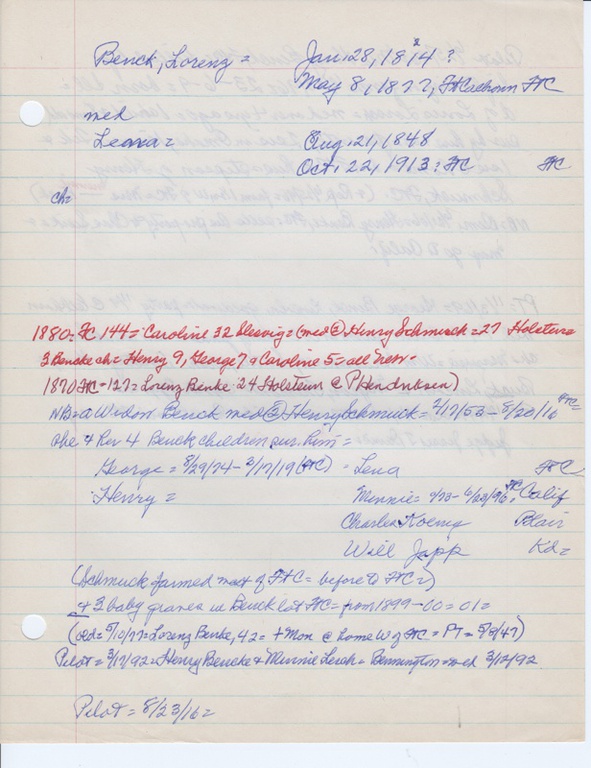 Benck, Lorenz = Jan. 28, 1814 ?
May 8, 1877, Ft Calhoun FTC
med
Leana = Aug. 21, 1848
Oct. 22, 1913 ? FTC FTC
ch=
1880 = FC 144 = Caroline 32 Slesvig = (med @ Henry Schmuck = 27 Holstein
3 Bencke ch = Henry 9, George 7 + Caroline 5 = all Neb.
1870 FTC = 127 = Lorenz Benke 24 Holstein @ P Hendriksen)
NB = a Widow Benck med @ Henry Schmuck = 2/17/53 - 8/20/16 FTC =
she & her 4 Benck children sur. him =
George = 8/29/74 - 3/17/19 (FTC) = Lena FTC
Henry = Minnie = 7/73 - 6/23/96 FTC, Calif
Charles Koenig Blair
Will Japp Kd =
(Schmuck farmed most of FTC = before to FTC =)
& 3 baby graves in Benck lot FTC = from 1899-00 = 01 =
(od = 5/10/77 = Lorenz Benke, 42 = + Mon @ home W of FTC = PT = 5/8/47)
Pilot = 3/17/92 = Henry Bencke + Minnie Lesch = Bennington = med 3/12/92
Pilot = 8/23/16 =